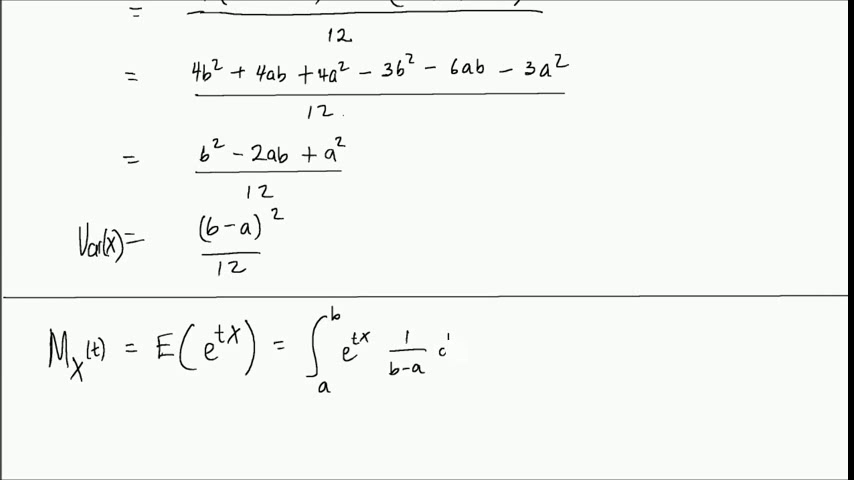 =
12
= 4b² + 4ab + 4a² - 3b² - 6ab - 3a²
12
= b² - 2ab + a²
12
Var(X) = (b-a)²
12
M_X(t) = E(e^{tX}) = ∫_a^b e^{tx} 1/(b-a)